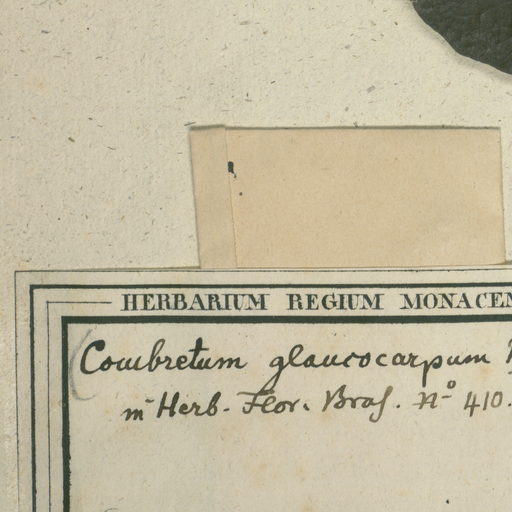 HERBARIUM REGIUM MONACEN
Combretum glaucocarpum
in Herb. Flor. Bras. No 410.